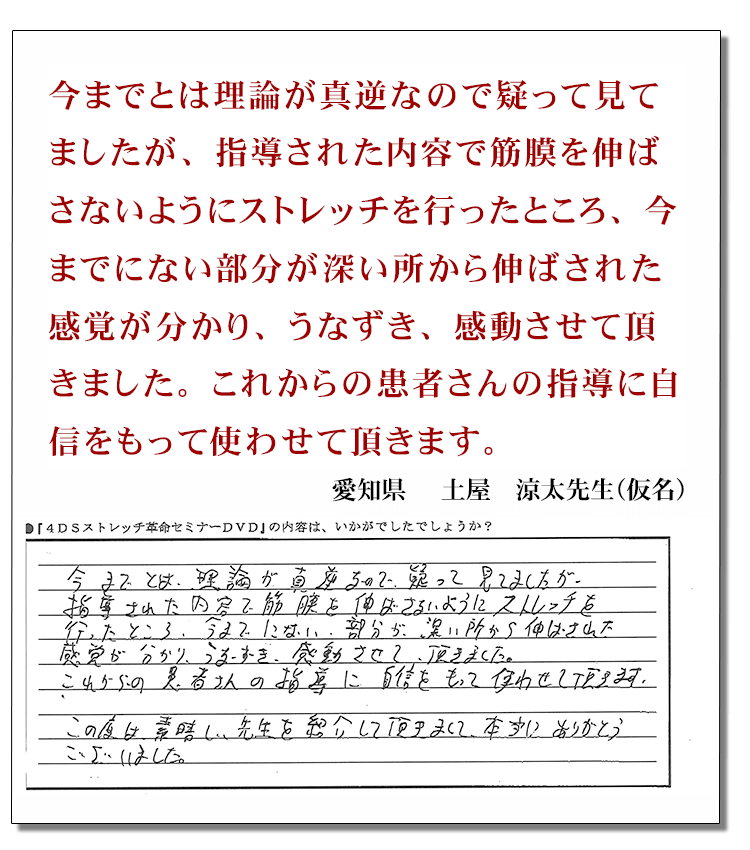 今までとは理論が真逆なので疑って見て
ましたが、指導された内容で筋膜を伸ば
さないようにストレッチを行ったところ、今
までにない部分が深い所から伸ばされた
感覚が分かり、うなずき、感動させて頂
きました。これからの患者さんの指導に自
信をもって使わせて頂きます。
愛知県　土屋　涼太先生(仮名)
『４ＤＳストレッチ革命セミナーＤＶＤ』の内容は、いかがでしたでしょうか？
今までとは、理論が真逆なので、疑って見てましたが、
指導された内容で筋膜を伸ばさないようにストレッチを
行ったところ、今までにない、部分が、深い所から伸ばされた
感覚が分かり、うなずき、感動させて、頂きました。
これからの患者さんの指導に自信をもって使わせて頂きます。
この度は、素晴しい先生を紹介して頂きまして、本当にありがとう
ございました。